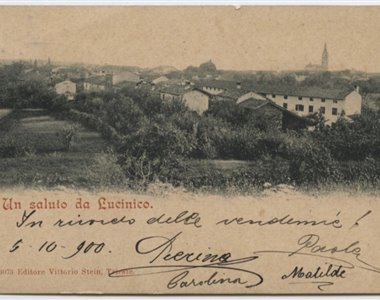 Un saluto da Lucinico.
In ricordo delle vendemmie!
5-10-900. Pierina Paola
Carolina Matilde
Editore Vittorio Stein, Trieste.